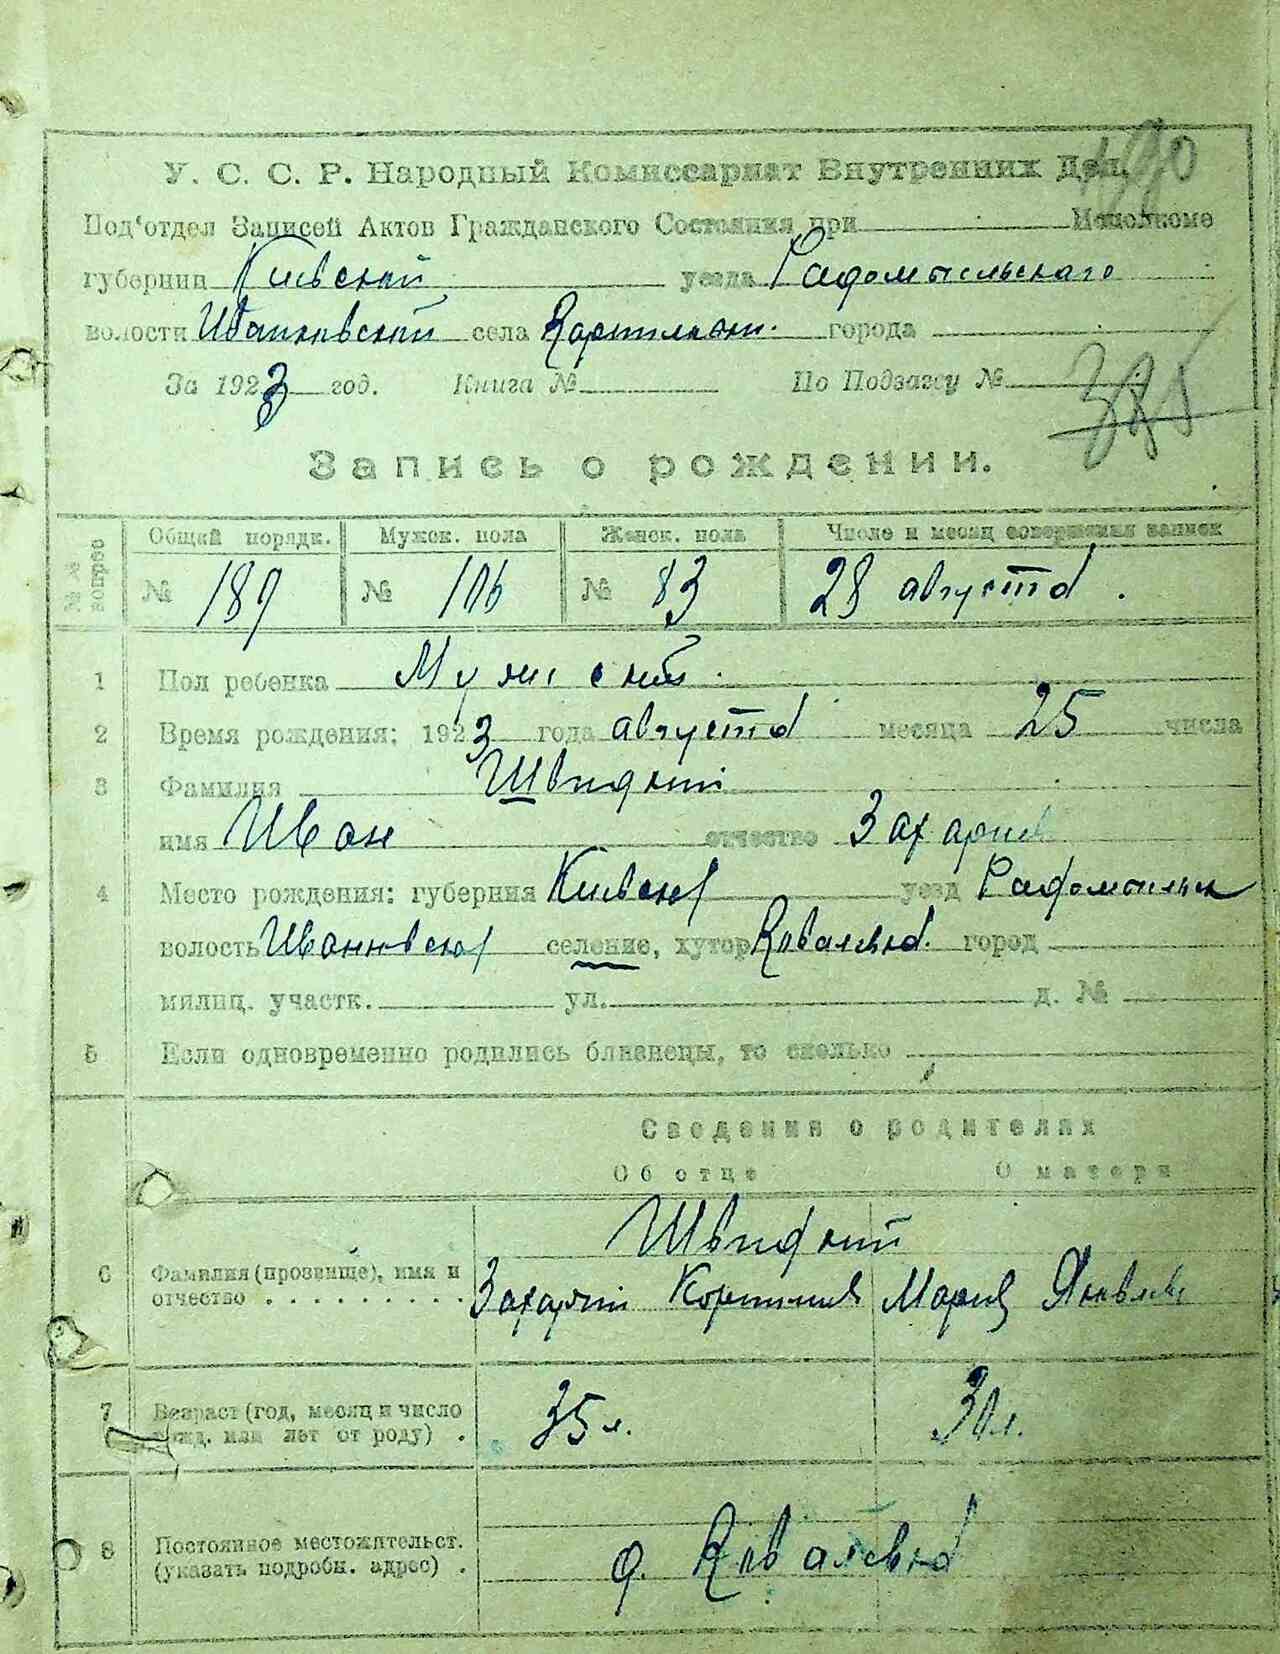 У. С. С. Р. Народный Комиссариат Внутренних Дел.
Под'отдел Записей Актов Гражданского Состояния при Исполкоме
губернии Киевской уезда Радомысльскаго
волости Иванковской села города
За 1923 год. Книга № По Подзагсу №
Запись о рождении.
№№ вопрос Общий порядк. Мужск. пола Женск. пола Число и месяц совершения записи
№ 189 № 106 № 83 28 августа.
1 Пол ребенка Мужской.
2 Время рождения: 1923 года августа месяца 25 числа
3 Фамилия Швидкий
имя Иван отчество Захариев
4 Место рождения: губерния Киевская уезд Радомысльск
волость Иванковская селение, хутор Ковалевка. город
милиц. участк. ул. д. №
5 Если одновременно родились близнецы, то сколько
Сведения о родителях
Об отце О матери
Швидкий
6 Фамилия (прозвище), имя и
отчество . . . . . . . . . Захарий Корнилиев Мария Яковлев
7 Возраст (год, месяц и число
рожд. или лет от роду) . 35 л. 30 л.
8 Постоянное местожительст.
(указать подробн. адрес) . д. Ковалевка